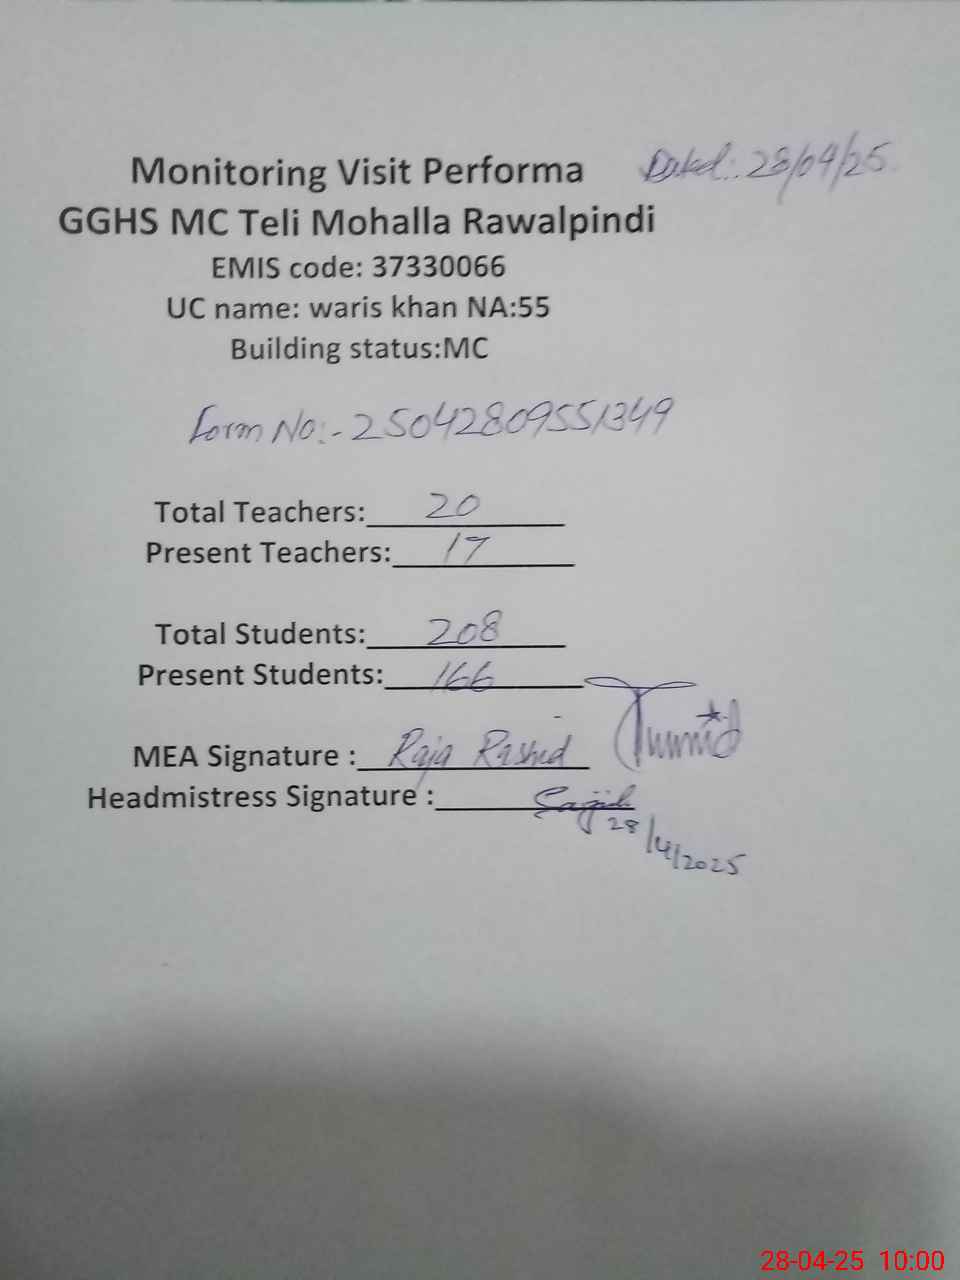 Monitoring Visit Performa
Dated:. 28/04/25.
GGHS MC Teli Mohalla Rawalpindi
EMIS code: 37330066
UC name: waris khan NA:55
Building status:MC
Form No:- 25042809551349
Total Teachers: 20
Present Teachers: 17
Total Students: 208
Present Students: 166
MEA Signature : Raja Rashid
Headmistress Signature :
28/4/2025
28-04-25 10:00